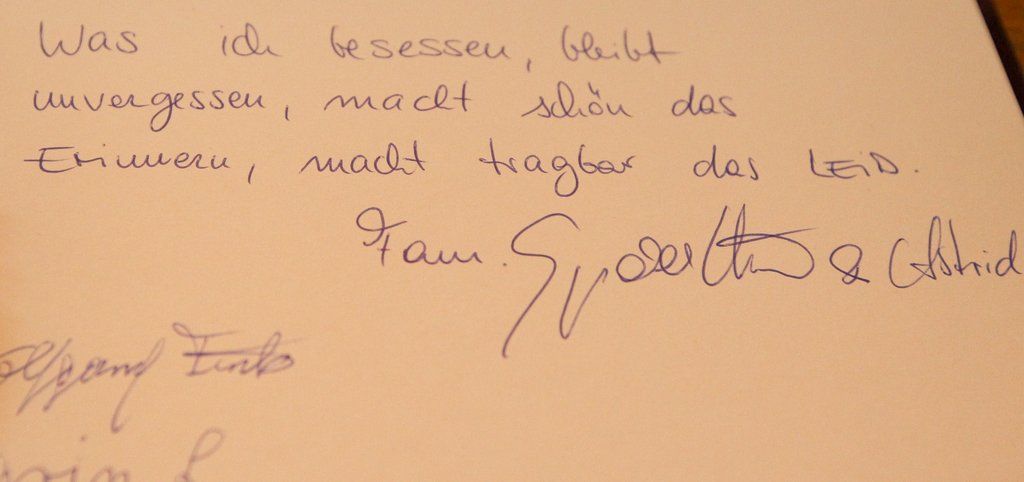 Was ich besessen, bleibt
unvergessen, macht schön das
Erinnern, macht tragbar das LEiD.
Fam. & Astrid